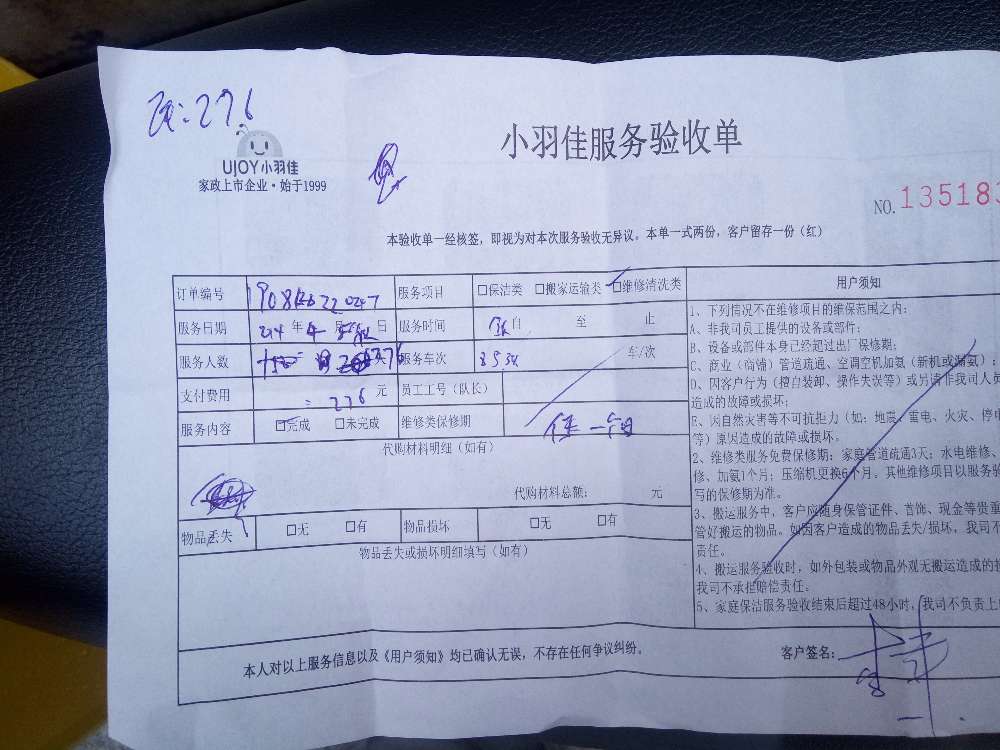 276
UJOY小羽佳
家政上市企业·始于1999
小羽佳服务验收单
NO.13518
本验收单一经核签，即视为对本次服务验收无异议。本单一式两份，客户留存一份（红）
订单编号
服务项目 □保洁类 □搬家运输类 □维修清洗类
服务日期 年 4 月 日 服务时间 自 至 止
服务人数 服务车次 车/次
支付费用 276 元 员工工号（队长）
服务内容 □完成 □未完成 维修类保修期
代购材料明细（如有）
代购材料总额： 元
物品丢失 □无 □有 物品损坏 □无 □有
物品丢失或损坏明细填写（如有）
用户须知
1、下列情况不在维修项目的维保范围之内：
A、非我司员工提供的设备或部件；
B、设备或部件本身已经超过出厂保修期；
C、商业（商铺）管道疏通、空调空机加氨（新机或漏氨）；
D、因客户行为（擅自装卸、操作失误等）或另请非我司人员
造成的故障或损坏；
E、因自然灾害等不可抗拒力（如：地震、雷电、火灾、停电
等）原因造成的故障或损坏。
2、维修类服务免费保修期：家庭管道疏通3天；水电维修、
修、加氨1个月；压缩机更换6个月。其他维修项目以服务验
写的保修期为准。
3、搬运服务中，客户应随身保管证件、首饰、现金等贵重
管好搬运的物品。如因客户造成的物品丢失/损坏，我司不
责任。
4、搬运服务验收时，如外包装或物品外观无搬运造成的
我司不承担赔偿责任。
5、家庭保洁服务验收结束后超过48小时，我司不负责上
本人对以上服务信息以及《用户须知》均已确认无误，不存在任何争议纠纷。
客户签名：